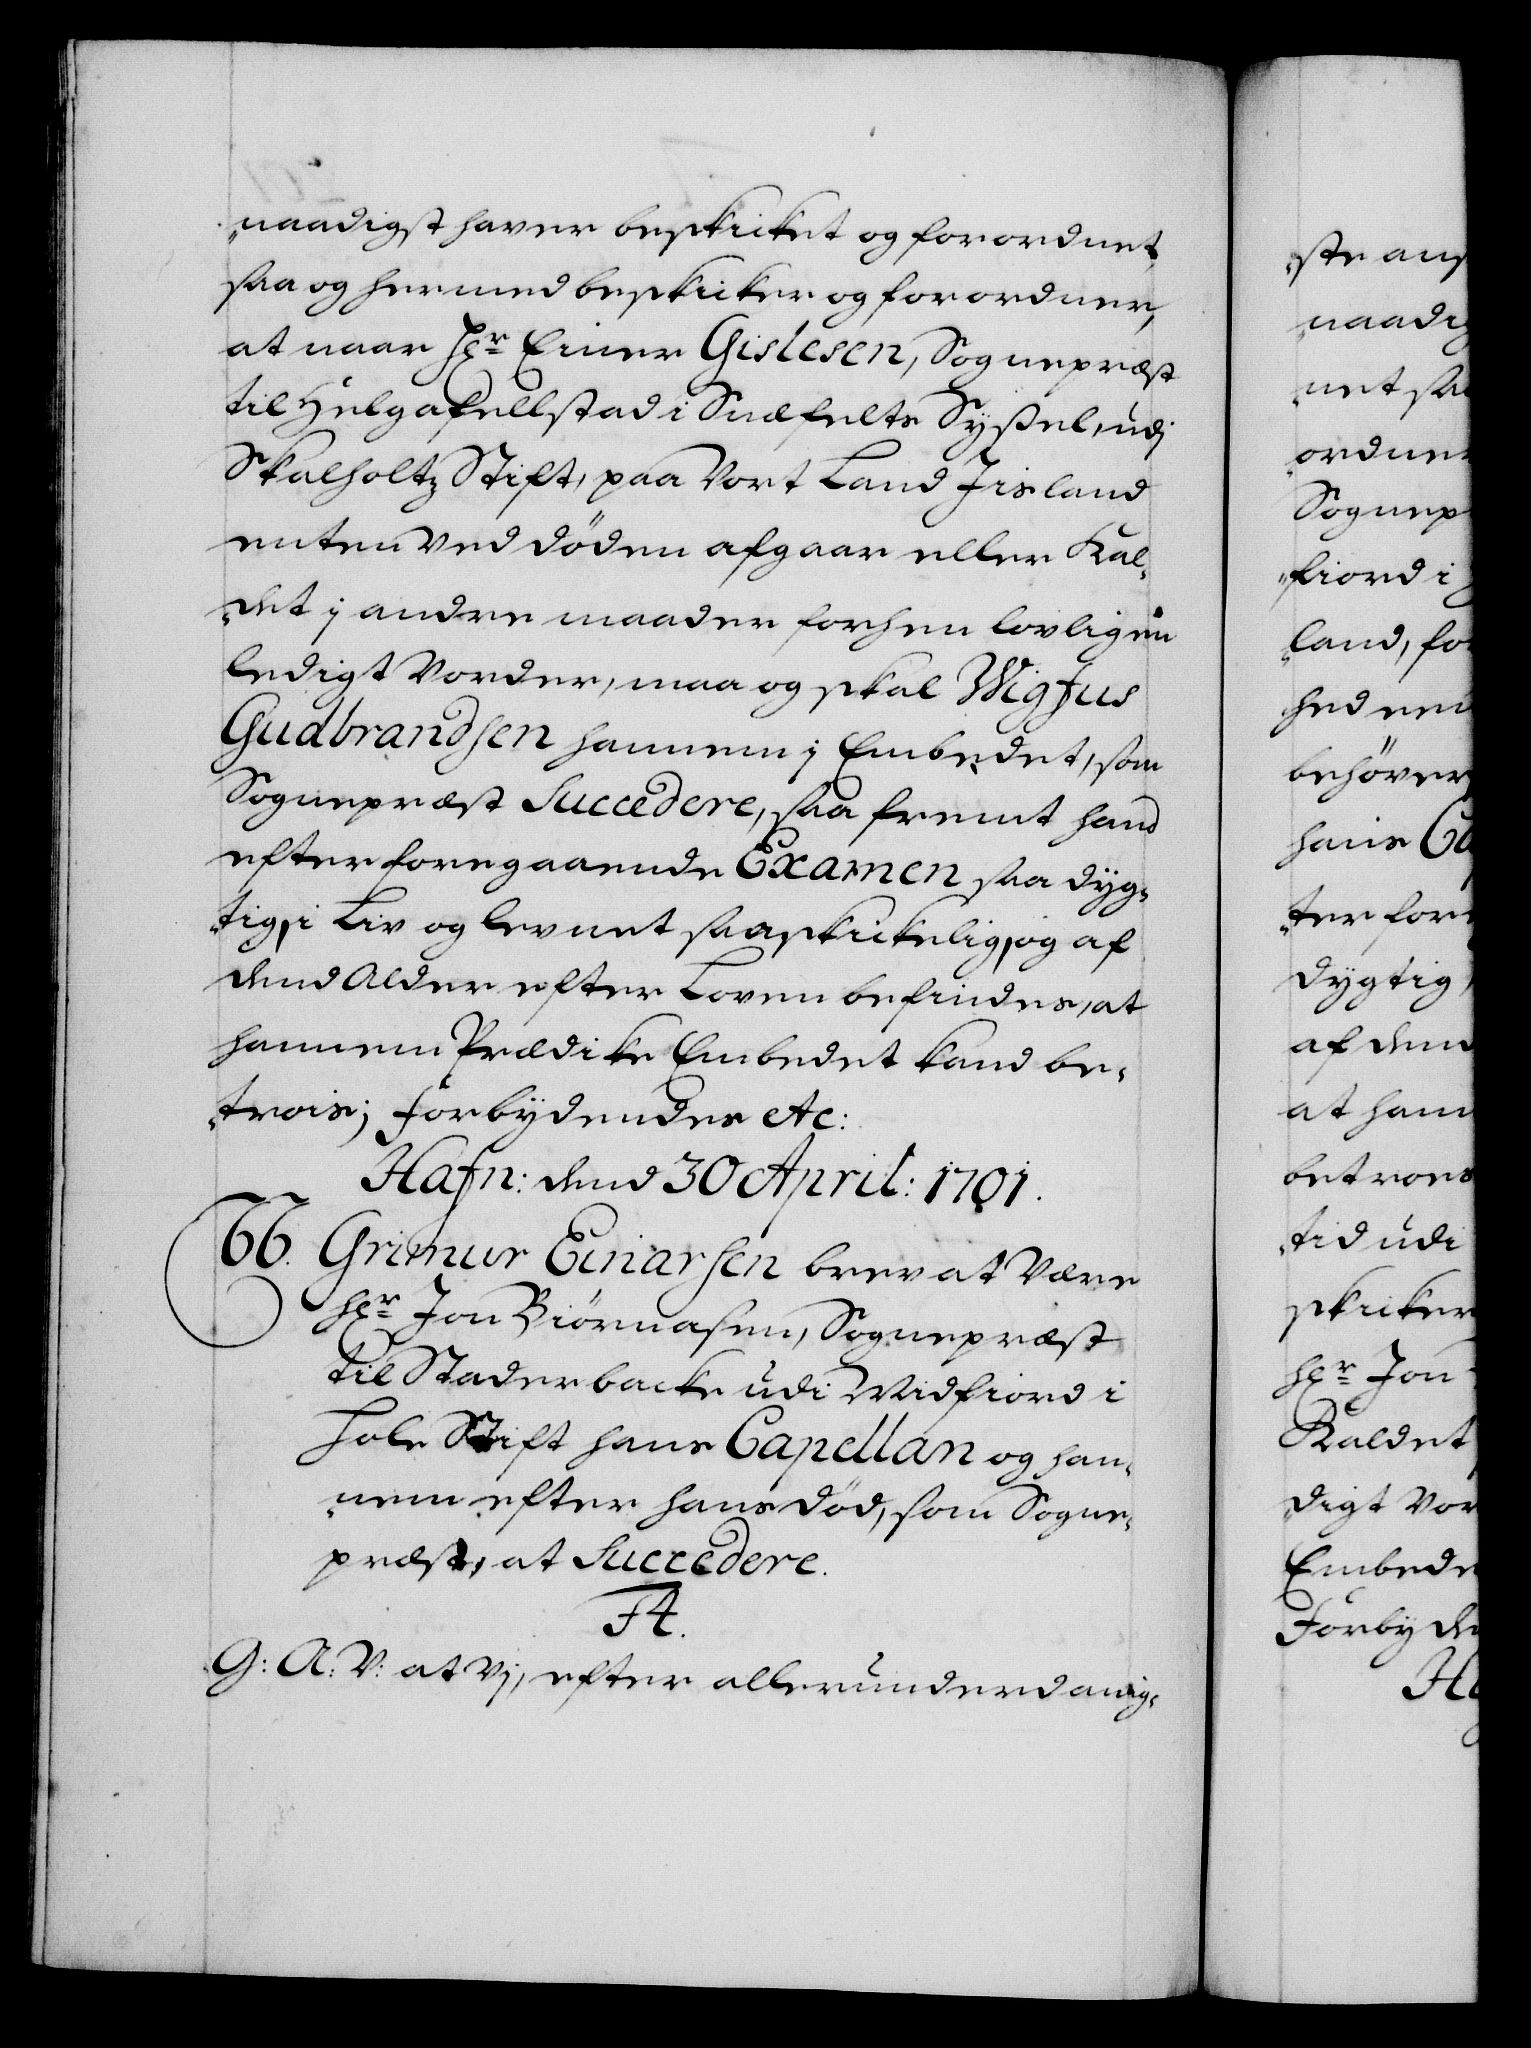 naadigst haver beskicket og forordnet,
saa og hermed beskicker og forordner,
at naar Hr Einer Gislesen, Sognepræst
til Helgafellstad i Snæfelts Syssel, udj
Skalholtz Stift, paa Vort Land Jisland
enten ved døden afgaar eller Kal-
det j andre maader forhen lovligen
ledigt vorder, maa og skal Wigfus
Gudbrandsen hannem j Embedet, som
Sognepræst Succedere, saa fremt hand
efter foregaaende Examen saa dyg-
tig, i Liv og levnet saa skickelig, og af
dend Alder efter Loven befindes, at
hannem Prædicke Embedet kand be-
trois; Forbydendes etc:
Hafn: dend 30 April: 1701.
66. Grimur Einarsen brev at være
Hr Jon Biørnasen, Sognepræst
til Staderbacke udi Midfiord i
Hole Stift hans Capellan og han-
nem efter hans død, som Sogne-
præst, at Succedere.
F4.
G: A: V: at Vj, efter allerunderdanig-
ste ans
naadig
net saa
ordner
Sognep
fiord i
land, for
hed
behøver
hans Ca
ter for
dygtig,
af dend
at han
betroes
tid udi
skicker
Hr Jon
Kaldet
digt vor
Embede
Forbyde
Ha